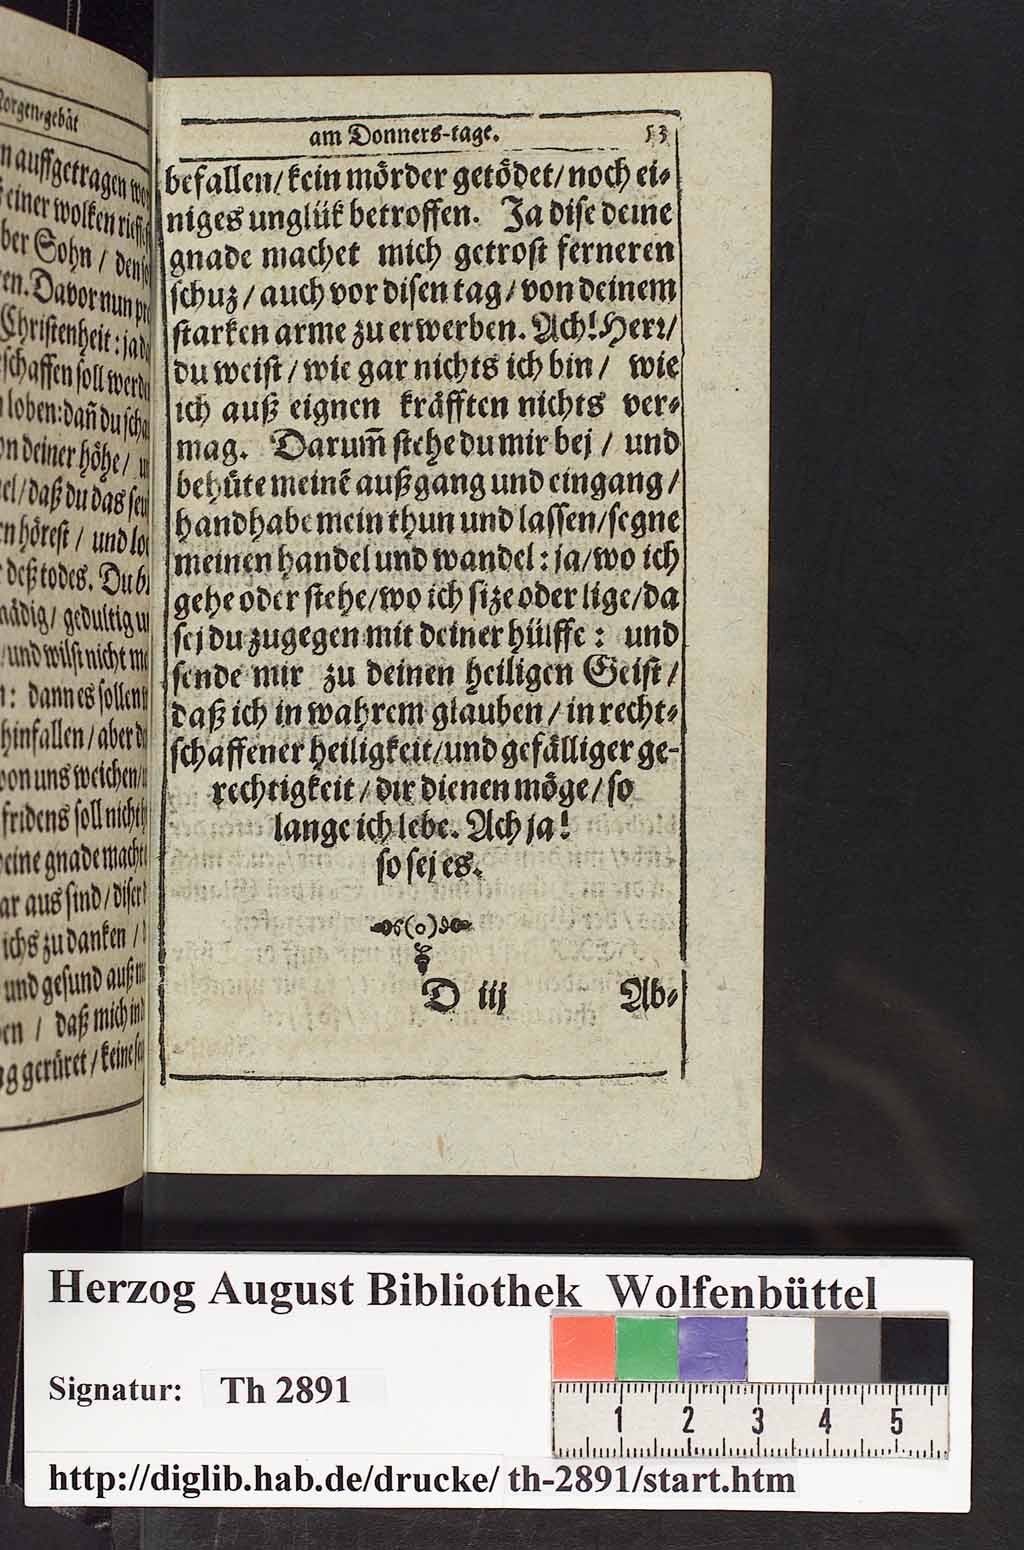 Morgen-gebät
n auffgetragen
einer wolken
ber Sohn /
en. Davor nun
Christenheit: ja
schaffen soll
loben: dañ du
on deiner höhe /
el / daß du das
n hörest / und
deß todes. Du
nädig / gedultig
/ und wilst nicht
n: dann es sollen
hinfallen / aber
von uns weichen /
fridens soll nicht
eine gnade macht
ar aus sind / diser
ichs zu danken /
und gesund auß
en / daß mich
ng gerüret / keine
am Donners-tage. 53
befallen / kein mörder getödet / noch ei-
niges unglük betroffen. Ja dise deine
gnade machet mich getrost ferneren
schuz / auch vor disen tag / von deinem
starken arme zu erwerben. Ach! Herr /
du weist / wie gar nichts ich bin / wie
ich auß eignen kräfften nichts ver-
mag. Darum̃ stehe du mir bej / und
behüte meinẽ außgang und eingang /
handhabe mein thun und lassen / segne
meinen handel und wandel: ja / wo ich
gehe oder stehe / wo ich size oder lige / da
sej du zugegen mit deiner hülffe: und
sende mir zu deinen heiligen Geist /
daß ich in wahrem glauben / in recht-
schaffener heiligkeit / und gefälliger ge-
rechtigkeit / dir dienen möge / so
lange ich lebe. Ach ja!
so sej es.
D iij Ab-
Herzog August Bibliothek Wolfenbüttel
Signatur: Th 2891
1 2 3 4 5
http://diglib.hab.de/drucke/ th-2891/start.htm